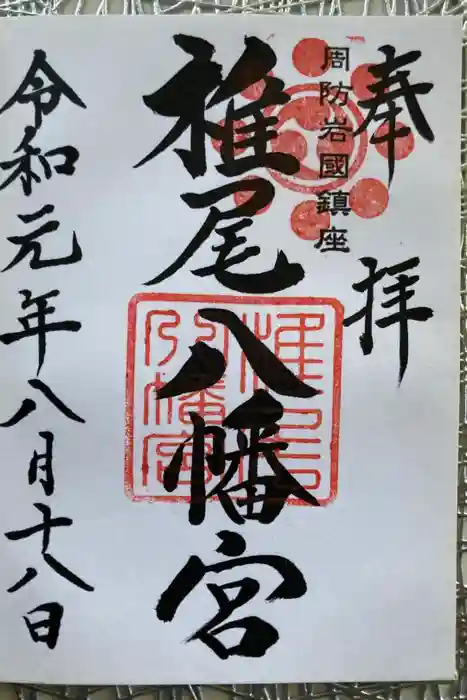 奉拝
周防岩國鎮座
椎尾八幡宮
令和元年八月十八日